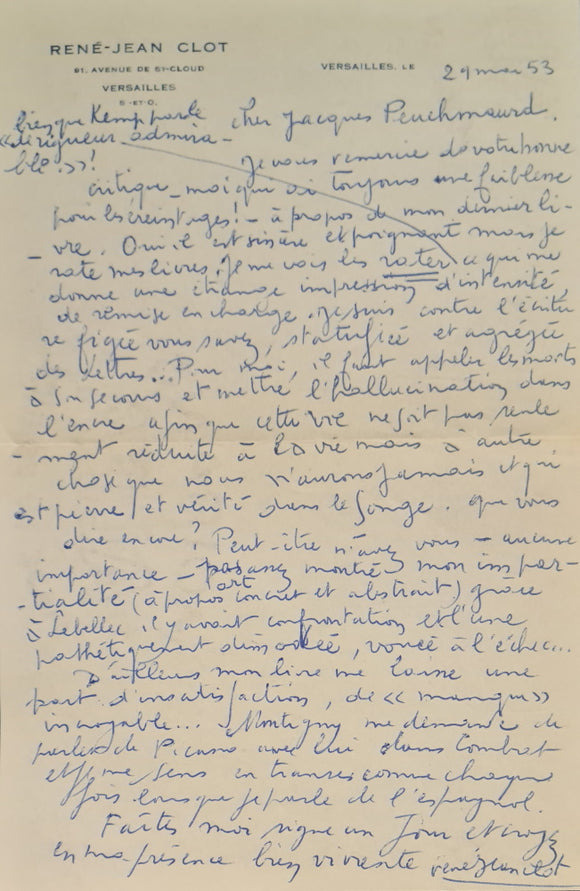 RENÉ-JEAN CLOT
91, AVENUE DE ST-CLOUD
VERSAILLES
S.-ET-O.
VERSAILLES, LE 29 mai 53
bien que Kemp parle
« de rigueur admira-
ble » !
cher Jacques Peuchmaurd,
Je vous remercie de votre bonne
critique _ moi qui ai toujours une faiblesse
pour les éreintages ! _ à propos de mon dernier li-
- vre. Oui il est sincère et poignant mais je
rate mes livres. Je me vois les rater ce qui me
donne une étrange impression d'intensité,
de remise en charge. Je suis contre l'écritu
re figée vous savez, statufiée et agrégée
des lettres... Pour moi, il faut appeler les morts
à son secours et mettre l'hallucination dans
l'encre afin que cette vie ne soit pas seule
- ment réduite à la vie mais à autre
chose que nous n'aurons jamais et qui
est pierre et vérité dans le songe. Que vous
dire encore ? Peut-être n'avez vous _ aucune
importance _ pas assez montré mon impar-
- tialité (à propos art concret et abstrait) grâce
à Lebellec il y avait confrontation et l'une
pathétiquement , vouée à l'échec...
D'ailleurs mon livre me laisse une
part d'insatisfaction, de « manque »
incroyable... Montigny me demande de
parler de Picasso avec lui dans Combat
et je me sens en transes comme chaque
fois lorsque je parle de l'espagnol.
Faites moi signe un jour et croyez
en ma présence bien vivante René Jean Clot